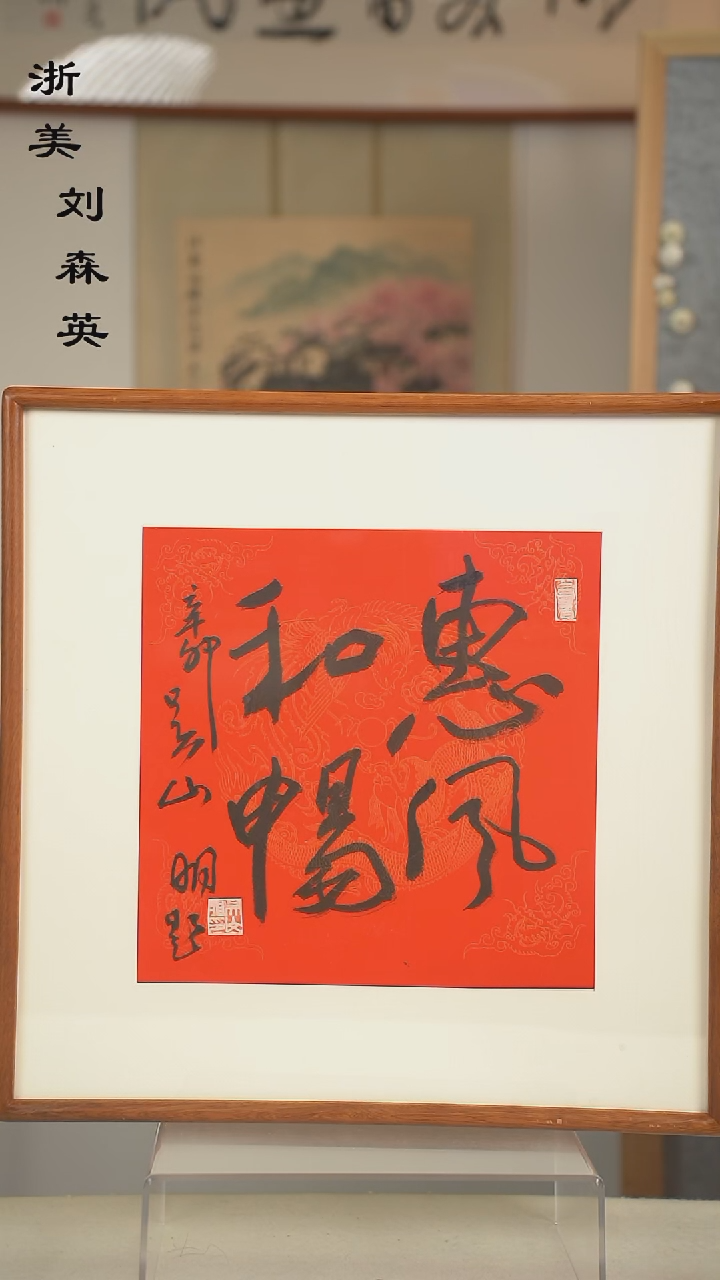 浙美
刘森英
惠风
和暢
辛卯吴山明题